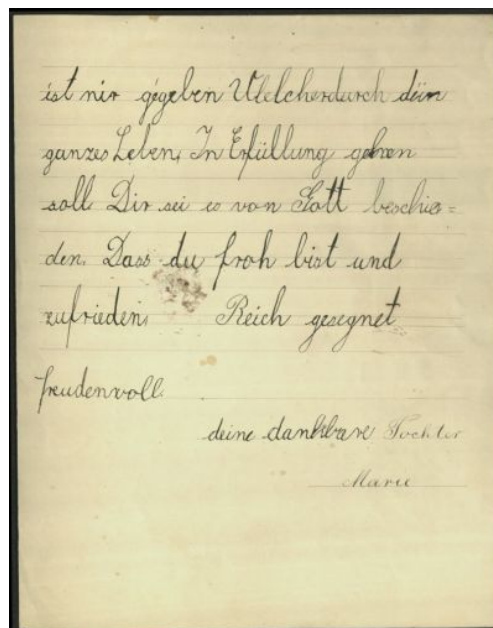 ist mir gegeben Welcherdurch dein
ganzes Leben, In Erfüllung gehen
soll. Dir sei es von Gott beschie=
den. Dass du froh bist und
zufrieden, Reich gesegnet
freudenvoll.
deine dankbare Tochter
Marie